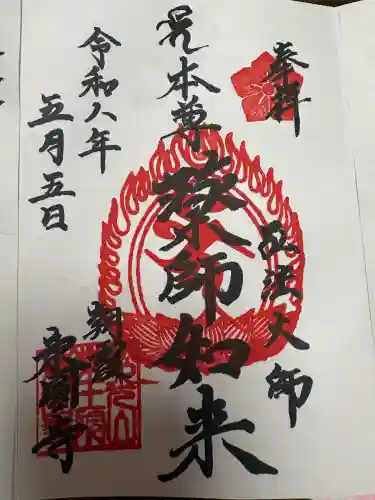 奉拝
弘法大師
本尊
薬師如来
令和八年
五月五日
寺